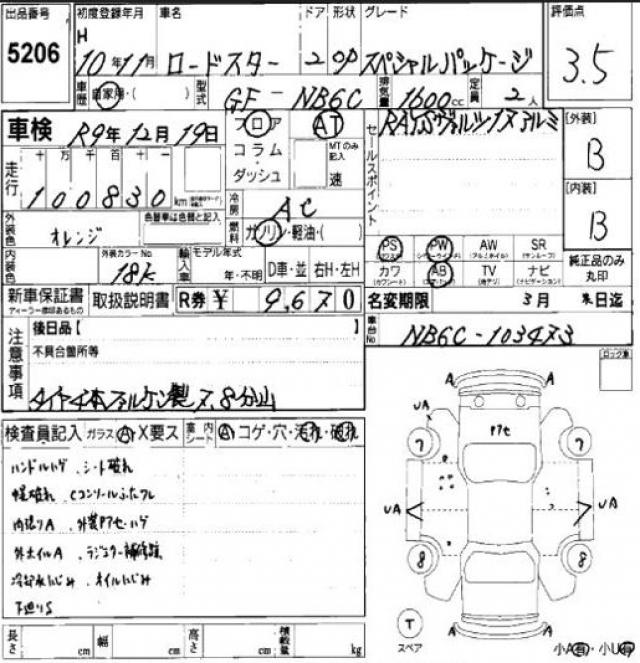 出品番号 初度登録年月 車名 ドア 形状 グレード 評価点
5206
H
10年11月 ロードスター 2 OP スペシャルパッケージ 3.5
車歴 自家用・( ) 型式 GF-NB6C 排気量 1600cc 定員 2人
車検 R9年12月19日
フロア AT
コラム MTのみ記入
ダッシュ 速
セールスポイント
[外装]
B
[内装]
B
走行 十 万 千 百 十 一
100830 km
冷房 AC
燃料 ガソリン・軽油・( )
外装色 オレンジ 色替車は色替と記入
内装色 外装カラーNo. 18K
輸入車 モデル年式 年・不明 D車・並 右H・左H
PS PW AW SR
カワ AB TV ナビ
純正品のみ丸印
新車保証書 取扱説明書 R券 ¥ 9,670
名変期限 3月 末日迄
車台No NB6C-103473
注意事項
後日品【 】
不具合箇所等
ロック車
検査員記入 ガラス A X要ス 室内シート A コゲ・穴・汚れ・破れ
ハンドルハゲ、シート破れ
幌破れ Cコンソールふたワレ
内張りA、外装アセ・ハゲ
冷却水にじみ オイルにじみ
下廻りS
アセ
A A
UA
7 7
UA UA
8 8
A A
T
スペア
小A有・小U有
長さ cm 幅 cm 高さ cm 積載量 kg